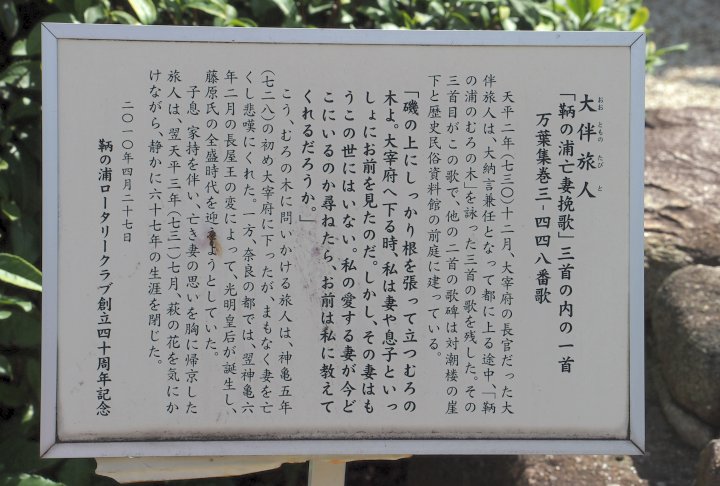 大伴旅人
おおとものたびと
「鞆の浦亡妻挽歌」三首の内の一首
万葉集巻三-四四八番歌
天平二年(七三〇)十二月、大宰府の長官だった大
伴旅人は、大納言兼任となって都に上る途中、「鞆
の浦のむろの木」を詠った三首の歌を残した。その
三首目がこの歌で、他の二首の歌碑は対潮楼の崖
下と歴史民俗資料館の前庭に建っている。
「磯の上にしっかり根を張って立つむろの
木よ。大宰府へ下る時、私は妻や息子といっ
しょにお前を見たのだ。しかし、その妻はも
うこの世にはいない。私の愛する妻が今ど
こにいるのか尋ねたら、お前は私に教えて
くれるだろうか。」
こう、むろの木に問いかける旅人は、神亀五年
(七二八)の初め大宰府に下ったが、まもなく妻を亡
くし悲嘆にくれた。一方、奈良の都では、翌神亀六
年二月の長屋王の変によって、光明皇后が誕生し、
藤原氏の全盛時代を迎えようとしていた。
子息 家持を伴い、亡き妻の思いを胸に帰京した
旅人は、翌天平三年(七三一)七月、萩の花を気にか
けながら、静かに六十七年の生涯を閉じた。
二〇一〇年四月二十七日
鞆の浦ロータリークラブ創立四十周年記念